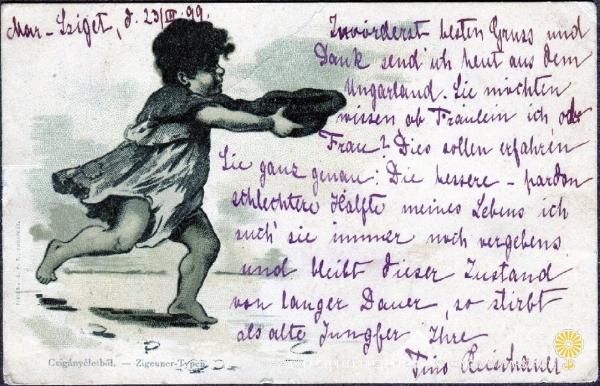 Mar-Sziget, d. 23/III. 99.
Zuvörderst besten Gruss und
Dank send' ich heut aus dem
Ungarland. Sie möchten
wissen ob Fräulein ich oder
Frau? Dies sollen erfahren
Sie ganz genau: Die bessere - pardon
schlechtere Hälfte meines Lebens ich
such' sie immer noch vergebens
und bleibt dieser Zustand
von langer Dauer, so stirbt
als alte Jungfer Ihre
Czigányéletből. — Zigeuner-Typen.